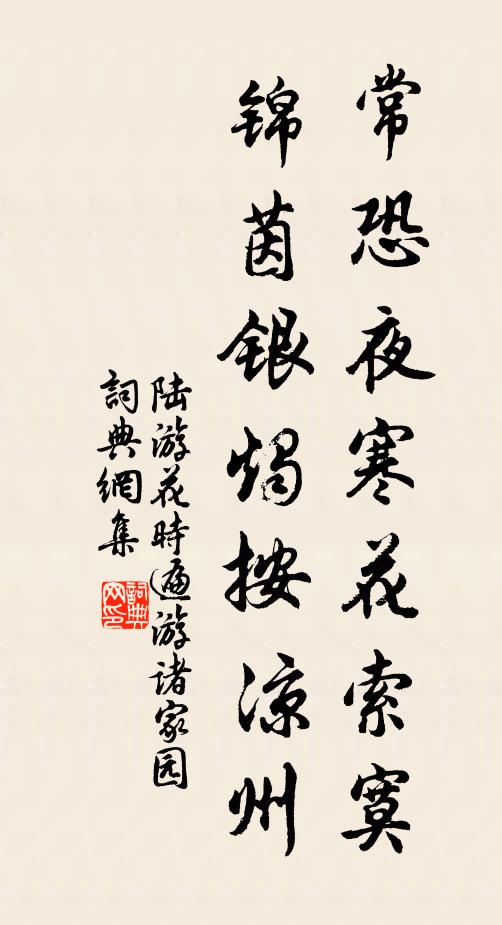 常恐夜寒花索寞
锦茵银烛按凉州
陆游花時遍游诸家园
詞典網集
詞典网印